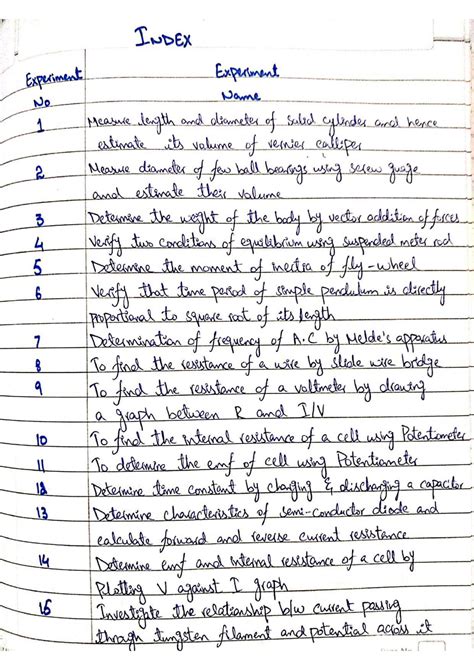 INDEX
Experiment Experiment
No Name
1 Measure length and diameter of solid cylinder and hence
estimate its volume of vernier calliper
2 Measure diameter of few ball bearings using screw guage
and estimate their volume
3 Determine the weight of the body by vector addition of forces
4 Verify two conditions of equilibrium using suspended meter rod
5 Determine the moment of inertia of fly-wheel
6 Verify that time period of simple pendulum is directly
proportional to square root of its length
7 Determination of frequency of A.C by Melde's apparatus
8 To find the resistance of a wire by slide wire bridge
9 To find the resistance of a voltmeter by drawing
a graph between R and I/V
10 To find the internal resistance of a cell using Potentiometer
11 To determine the emf of cell using Potentiameter
12 Determine time constant by charging & discharging a capacitor
13 Determine characteristics of semi-conductor diode and
calculate forward and reverse current resistance
14 Determine emf and internal resistance of a cell by
Plotting V against I graph
15 Investigate the relationship b/w current passing
through tungsten filament and potential across it